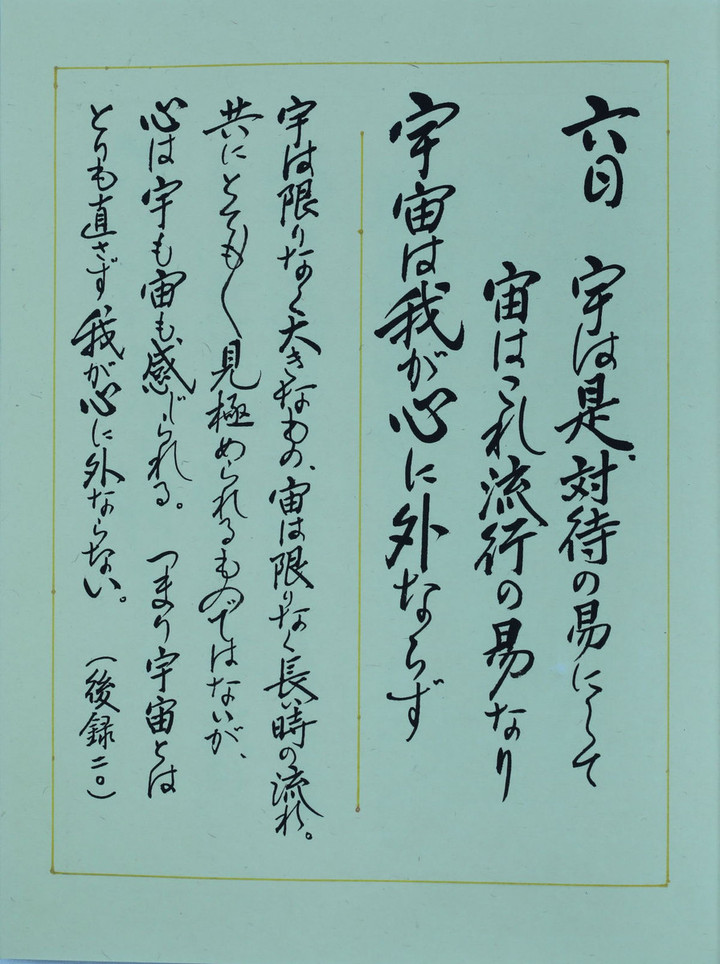 六日 宇は是対待の易にして
宙はこれ流行の易なり
宇宙は我が心に外ならず
宇は限りなく大きなもの、宙は限りなく長い時の流れ。
共にとても〱見極められるものではないが、
心は宇も宙も感じられる。 つまり宇宙とは
とりも直さず、我が心に外ならない。 (後録二〇)